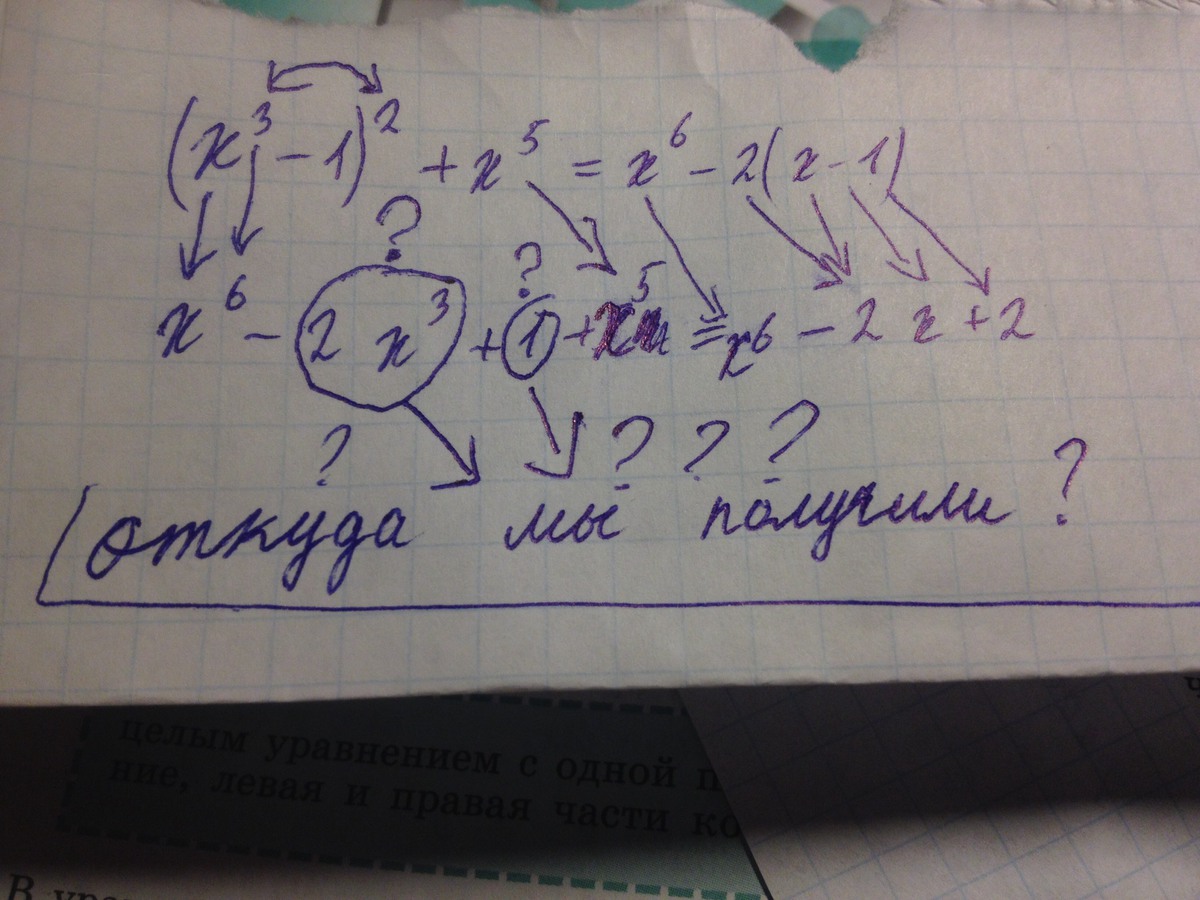 (x³ - 1)² + x⁵ = x⁶ - 2(x - 1)
? ?
x⁶ - 2x³ + 1 + x⁵ = x⁶ - 2x + 2
? ? ? ?
откуда мы получили ?
целым уравнением с одной п
ние, левая и правая части ко
В ура